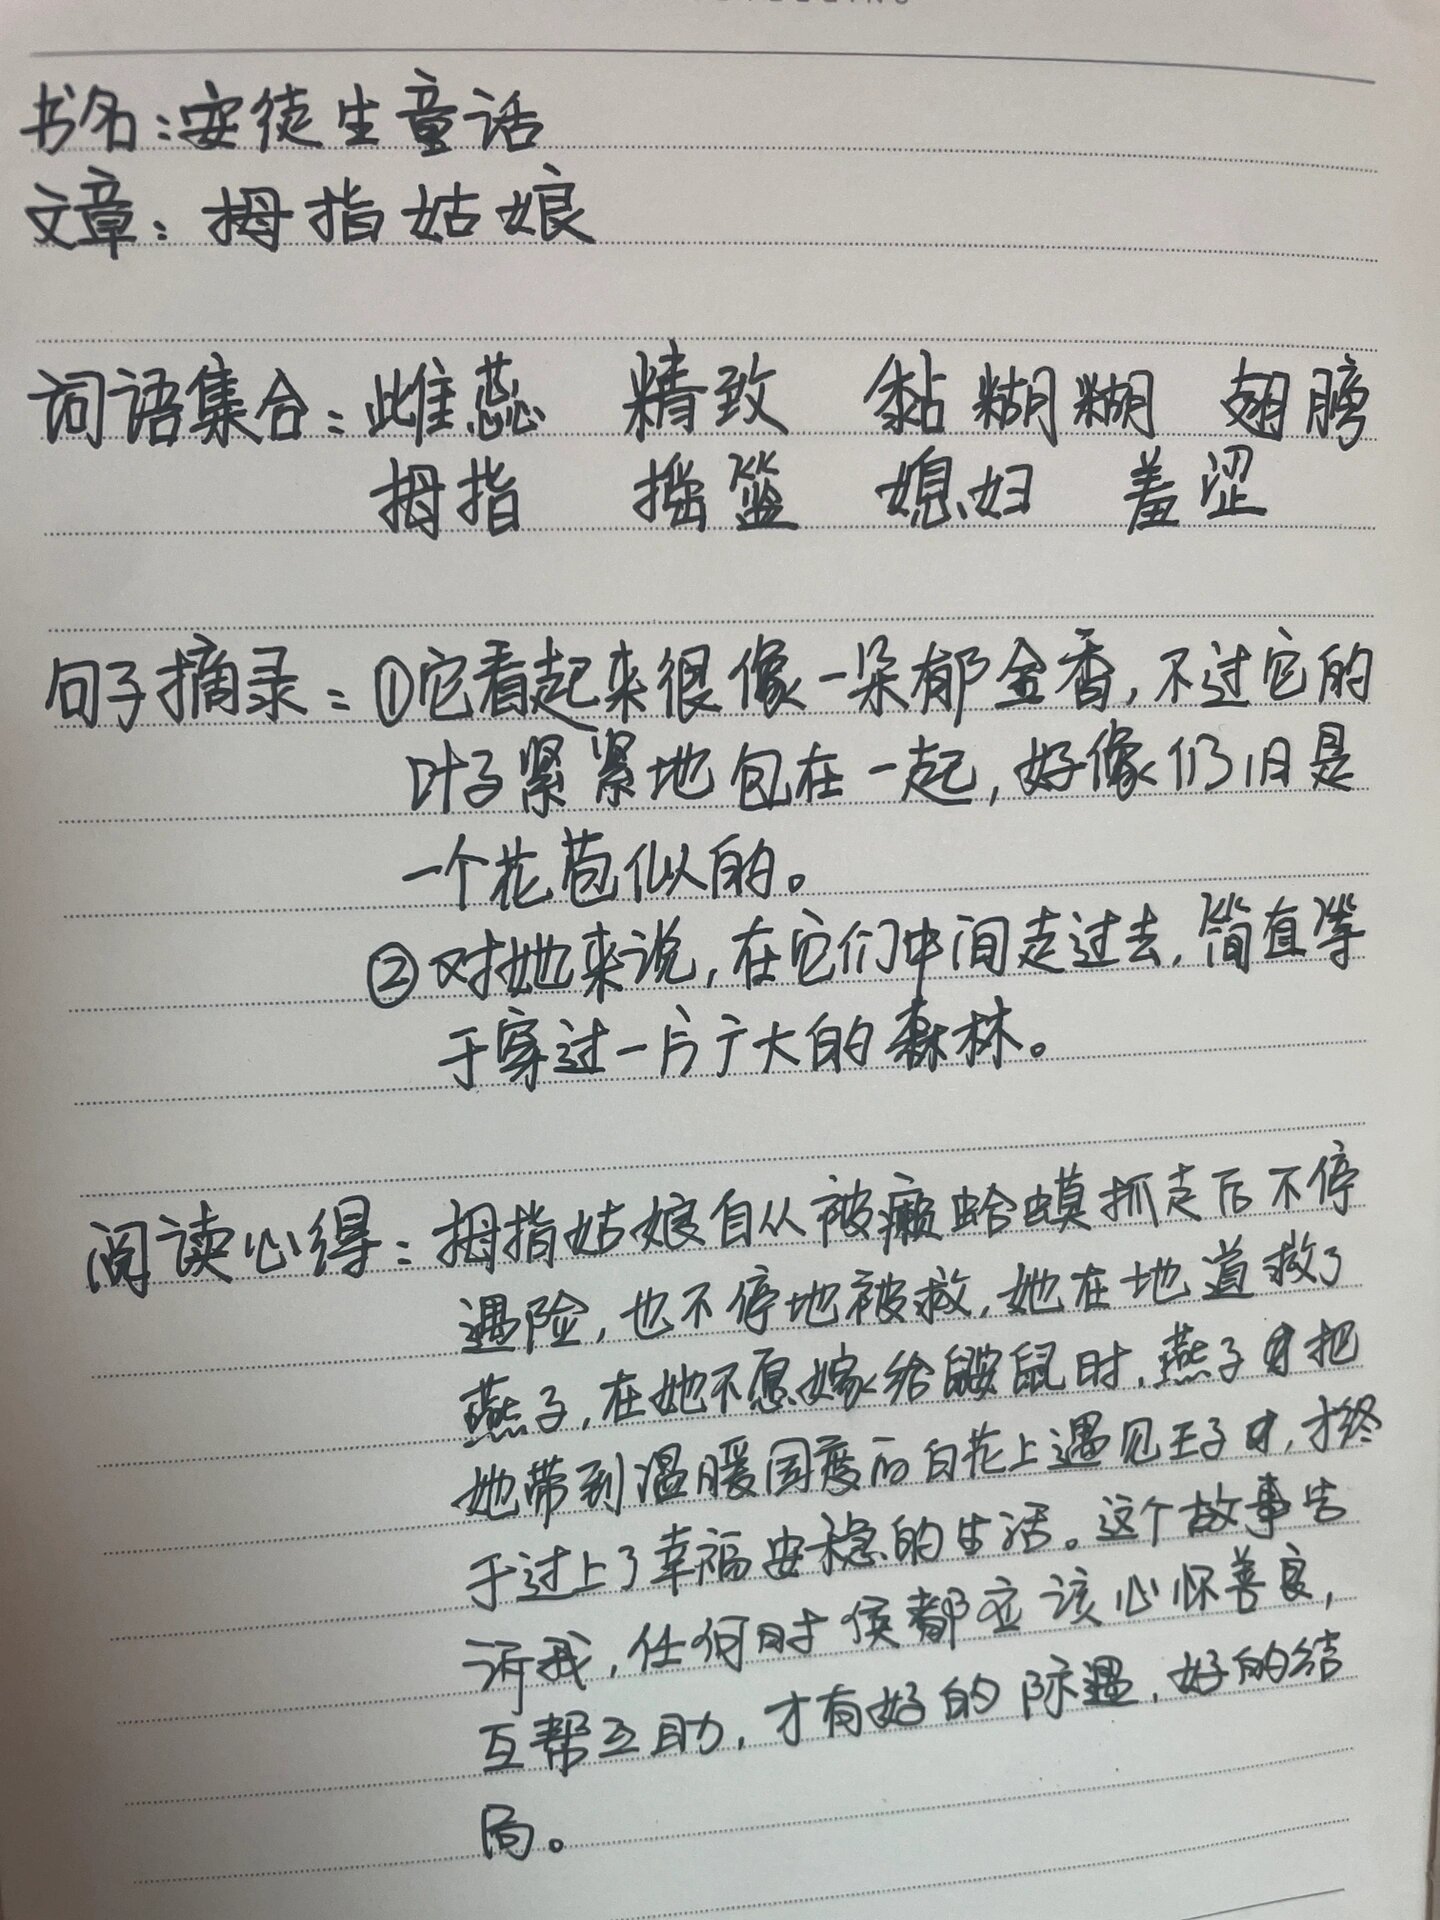 书名:安徒生童话
文章:拇指姑娘
词语集合:雌蕊 精致 黏糊糊 翅膀
拇指 摇篮 媳妇 羞涩
句子摘录:①它看起来很像一朵郁金香,不过它的
叶子紧紧地包在一起,好像仍旧是
一个花苞似的。
②对她来说,在它们中间走过去,简直等
于穿过一片广大的森林。
阅读心得:拇指姑娘自从被癞蛤蟆抓走后不停
遇险,也不停地被救,她在地道救了
燕子,在她不愿嫁给鼹鼠时,燕子才把
她带到温暖国度的白花上遇见王子时,才终
于过上了幸福安稳的生活。这个故事告
诉我,任何时候都应该心怀善良,
互帮互助,才有好的际遇,好的结
局。